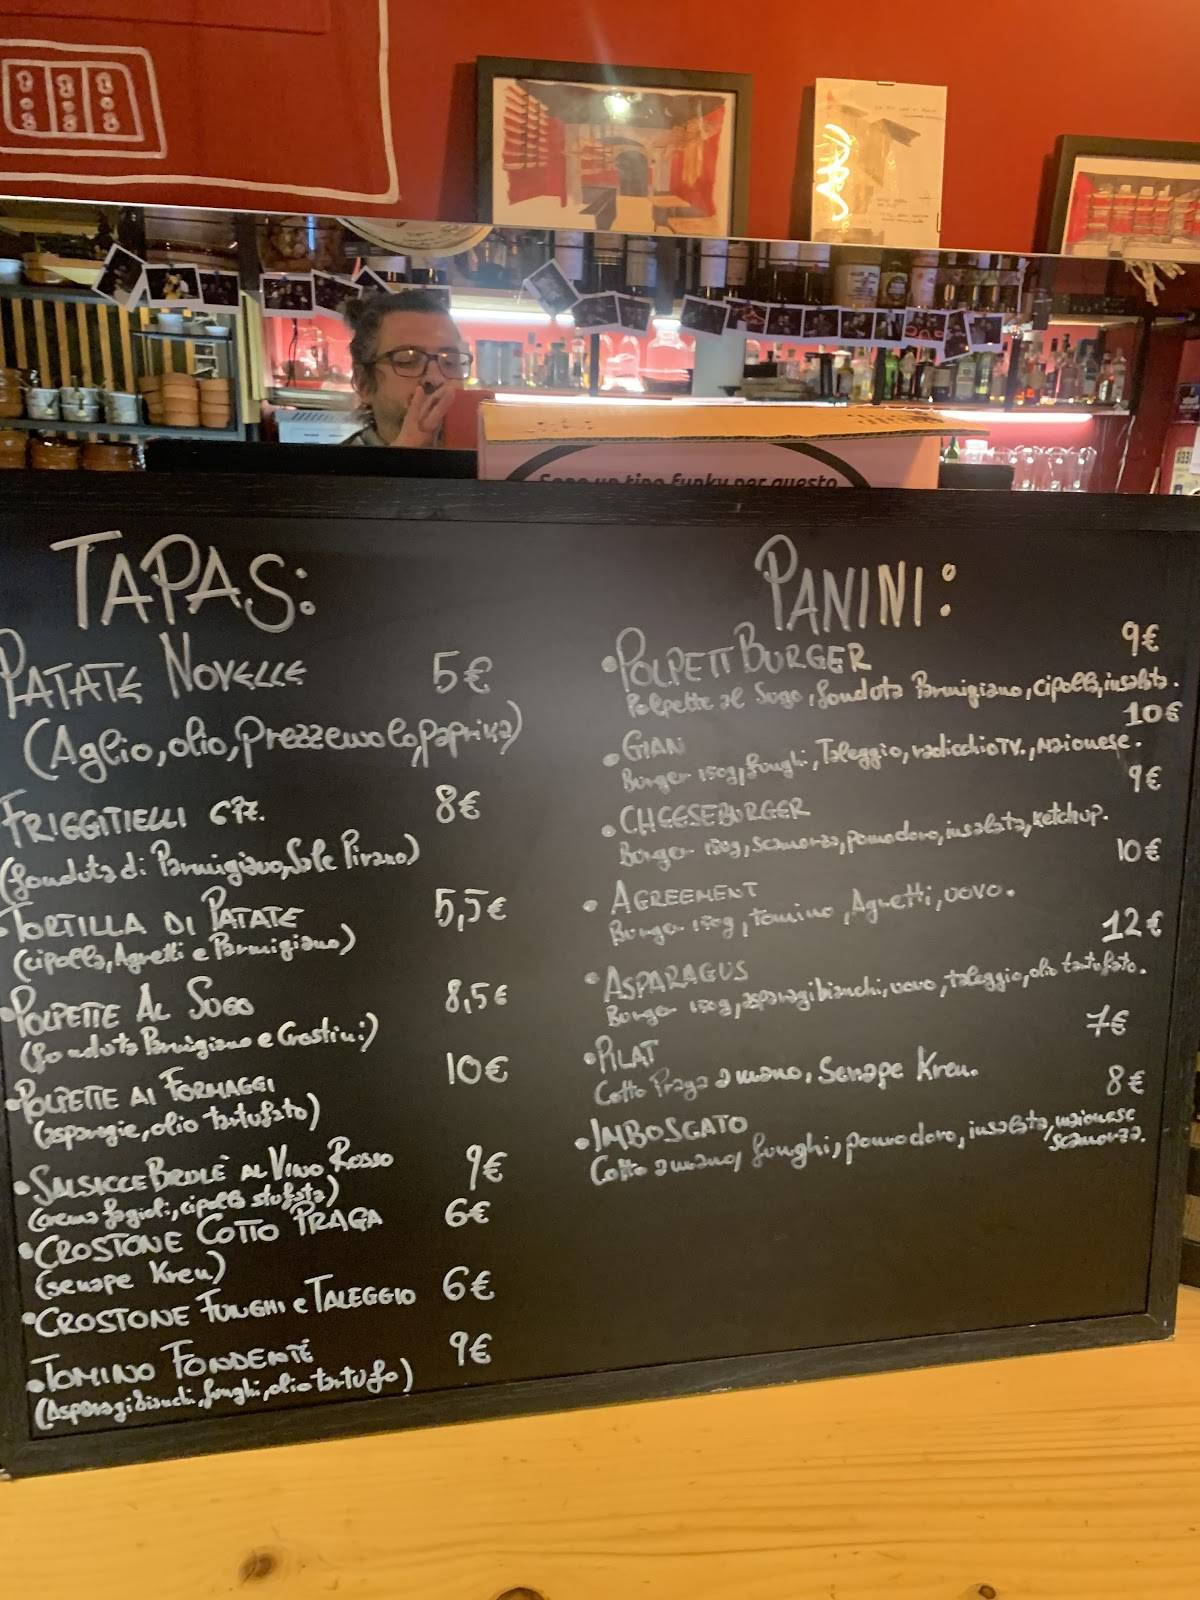 Sono un tipo funky per questo
TAPAS:
PATATE NOVELLE 5€
(Aglio, olio, prezzemolo, paprika)
FRIGGITIELLI 8€
(fonduta di Parmigiano, Sale Pirano)
TORTILLA DI PATATE 5,5€
(cipolla, Agretti e Parmigiano)
• POLPETTE AL SUGO 8,5€
(fonduta Parmigiano e Crostini)
• POLPETTE AI FORMAGGI 10€
(asparagie, olio tartufato)
• SALSICCE BRULÈ AL VINO ROSSO 9€
(crema fagioli, cipolla stufata)
• CROSTONE COTTO PRAGA 6€
(senape Kren)
• CROSTONE FUNGHI e TALEGGIO 6€
• TOMINO FONDENTE 9€
(Asparagi bianchi, funghi, olio tartufo)
PANINI:
• POLPETT BURGER 9€
Polpette al Sugo, fonduta Parmigiano, cipolla, insalata.
• GIAN 10€
Burger 150g, funghi, Taleggio, radicchio TV., Maionese.
• CHEESEBURGER 9€
Burger 150g, scamorza, pomodoro, insalata, ketchup.
• AGREEMENT 10€
Burger 150g, tomino, Agretti, uovo.
• ASPARAGUS 12€
Burger 150g, asparagi bianchi, uovo, taleggio, olio tartufato.
• PILAT 7€
Cotto Praga a mano, Senape Kren.
• IMBOSCATO 8€
Cotto a mano, funghi, pomodoro, insalata, maionese
scamorza.